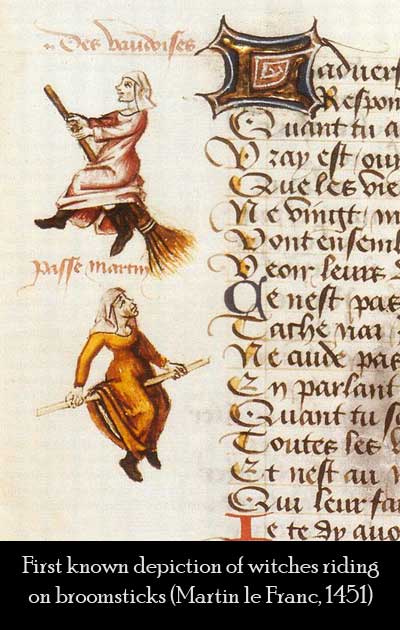 Des vaudoises
passe martin
Ladvers
Respon
Quant tu a
Vray est, ou
Que les vie
Ne vingt, m
Vont ensemb
Veoir leurs
Ce nest pas
Tache
Ne cuide pas
En parlant
Quant tu sc
Toutes les
Et nest au
Qui leur fa
Je te dy avo
First known depiction of witches riding
on broomsticks (Martin le Franc, 1451)